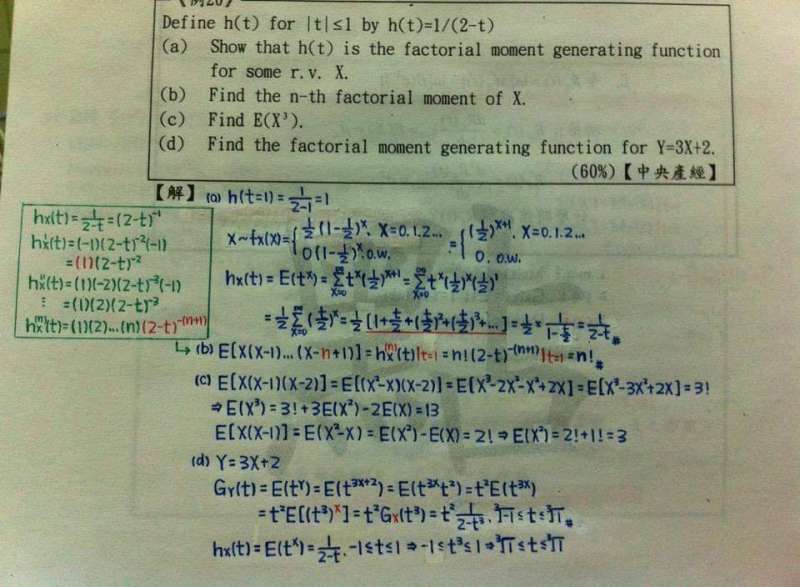 《例20》
Define h(t) for |t|≤1 by h(t)=1/(2-t)
(a) Show that h(t) is the factorial moment generating function
for some r.v. X.
(b) Find the n-th factorial moment of X.
(c) Find E(X³).
(d) Find the factorial moment generating function for Y=3X+2.
(60%)【中央產經】
【解】(a) h(t=1)=1/(2-1)=1
X~fx(X)={½(1-½)^X, X=0.1.2... ={(½)^(X+1), X=0.1.2...
0(1-½)^X, o.w. 0. o.w.
hx(t)=E(t^X)=∑_(X=0)^∞ t^X(½)^(X+1)=∑_(X=0)^∞ t^X(½)^X(½)^1
=½∑_(X=0)^∞(t/2)^X=½[1+t/2+(t/2)²+(t/2)³+...]=½×1/(1-t/2)=1/(2-t)#
hx(t)=1/(2-t)=(2-t)^-1
hx'(t)=(-1)(2-t)^-2(-1)
=(1)(2-t)^-2
hx''(t)=(1)(-2)(2-t)^-3(-1)
⋮ =(1)(2)(2-t)^-3
hx^(n)(t)=(1)(2)...(n)(2-t)^-(n+1)
↳(b) E[X(X-1)...(X-n+1)]=hx^(n)(t)|t=1=n!(2-t)^-(n+1)|t=1=n!#
(c) E[X(X-1)(X-2)]=E[(X²-X)(X-2)]=E[X³-2X²-X²+2X]=E[X³-3X²+2X]=3!
⇒E(X³)=3!+3E(X²)-2E(X)=13
E[X(X-1)]=E(X²-X)=E(X²)-E(X)=2!⇒E(X²)=2!+1!=3
(d) Y=3X+2
GY(t)=E(t^Y)=E(t^(3X+2))=E(t^(3X)t²)=t²E(t^(3X))
=t²E[(t³)^X]=t²Gx(t³)=t² 1/(2-t³), ³√-1≤t≤³√1#
hx(t)=E(t^X)=1/(2-t), -1≤t≤1⇒-1≤t³≤1⇒³√-1≤t≤³√1